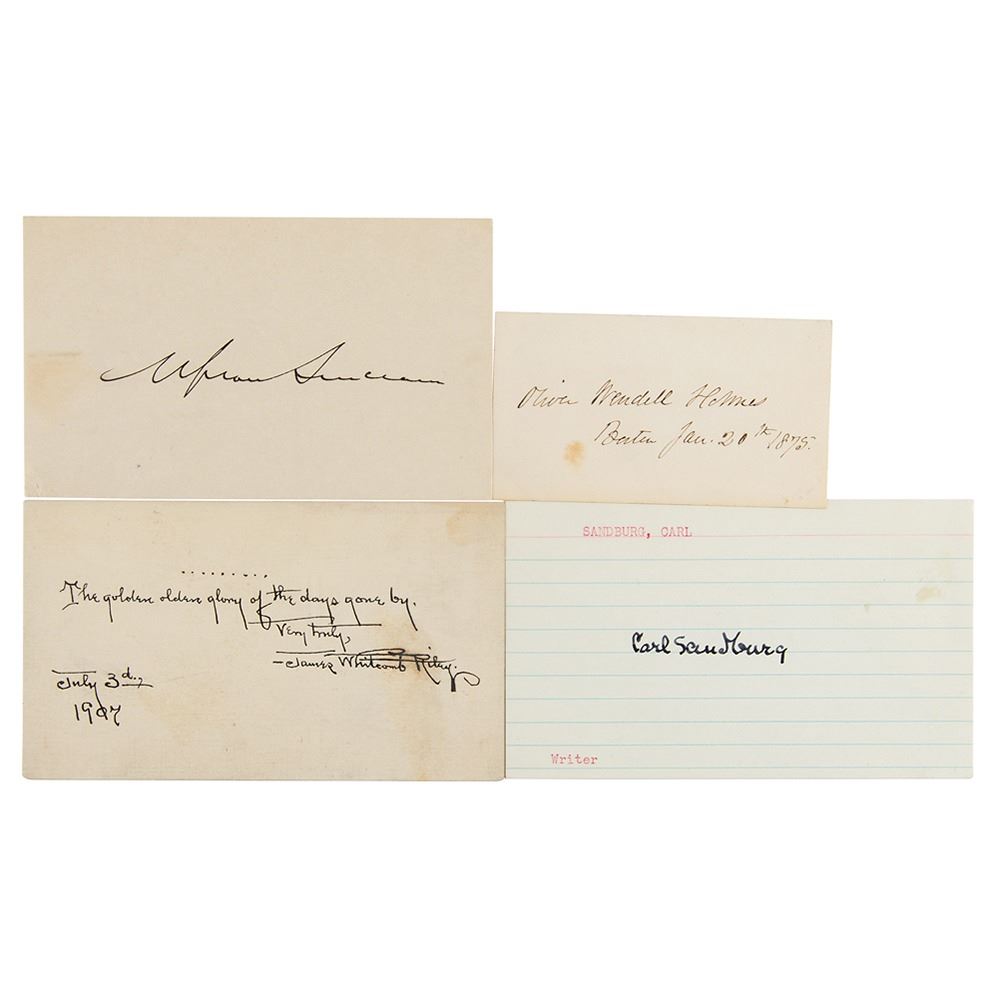 Upton Sinclair
Oliver Wendell Holmes
Boston Jan. 20th 1875.
The golden olden glory of the days gone by.
Very truly,
—James Whitcomb Riley.
July 3d.,
1907
SANDBURG, CARL
Carl Sandburg
Writer